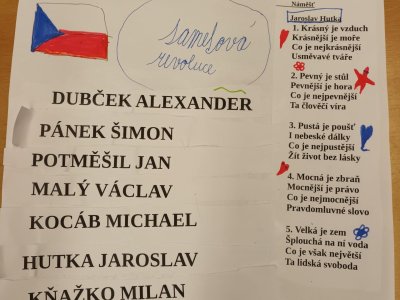 sametová
revoluce
DUBČEK ALEXANDER
PÁNEK ŠIMON
POTMĚŠIL JAN
MALÝ VÁCLAV
KOCÁB MICHAEL
HUTKA JAROSLAV
KŇAŽKO MILAN
Náměšť
Jaroslav Hutka
1. Krásný je vzduch
Krásnější je moře
Co je nejkrásnější
Usměvavé tváře
2. Pevný je stůl
Pevnější je hora
Co je nejpevnější
Ta člověčí víra
3. Pustá je poušť
I nebeské dálky
Co je nejpustější
Žít život bez lásky
4. Mocná je zbraň
Mocnější je právo
Co je nejmocnější
Pravdomluvné slovo
5. Velká je zem
Šplouchá na ní voda
Co je však největší
Ta lidská svoboda